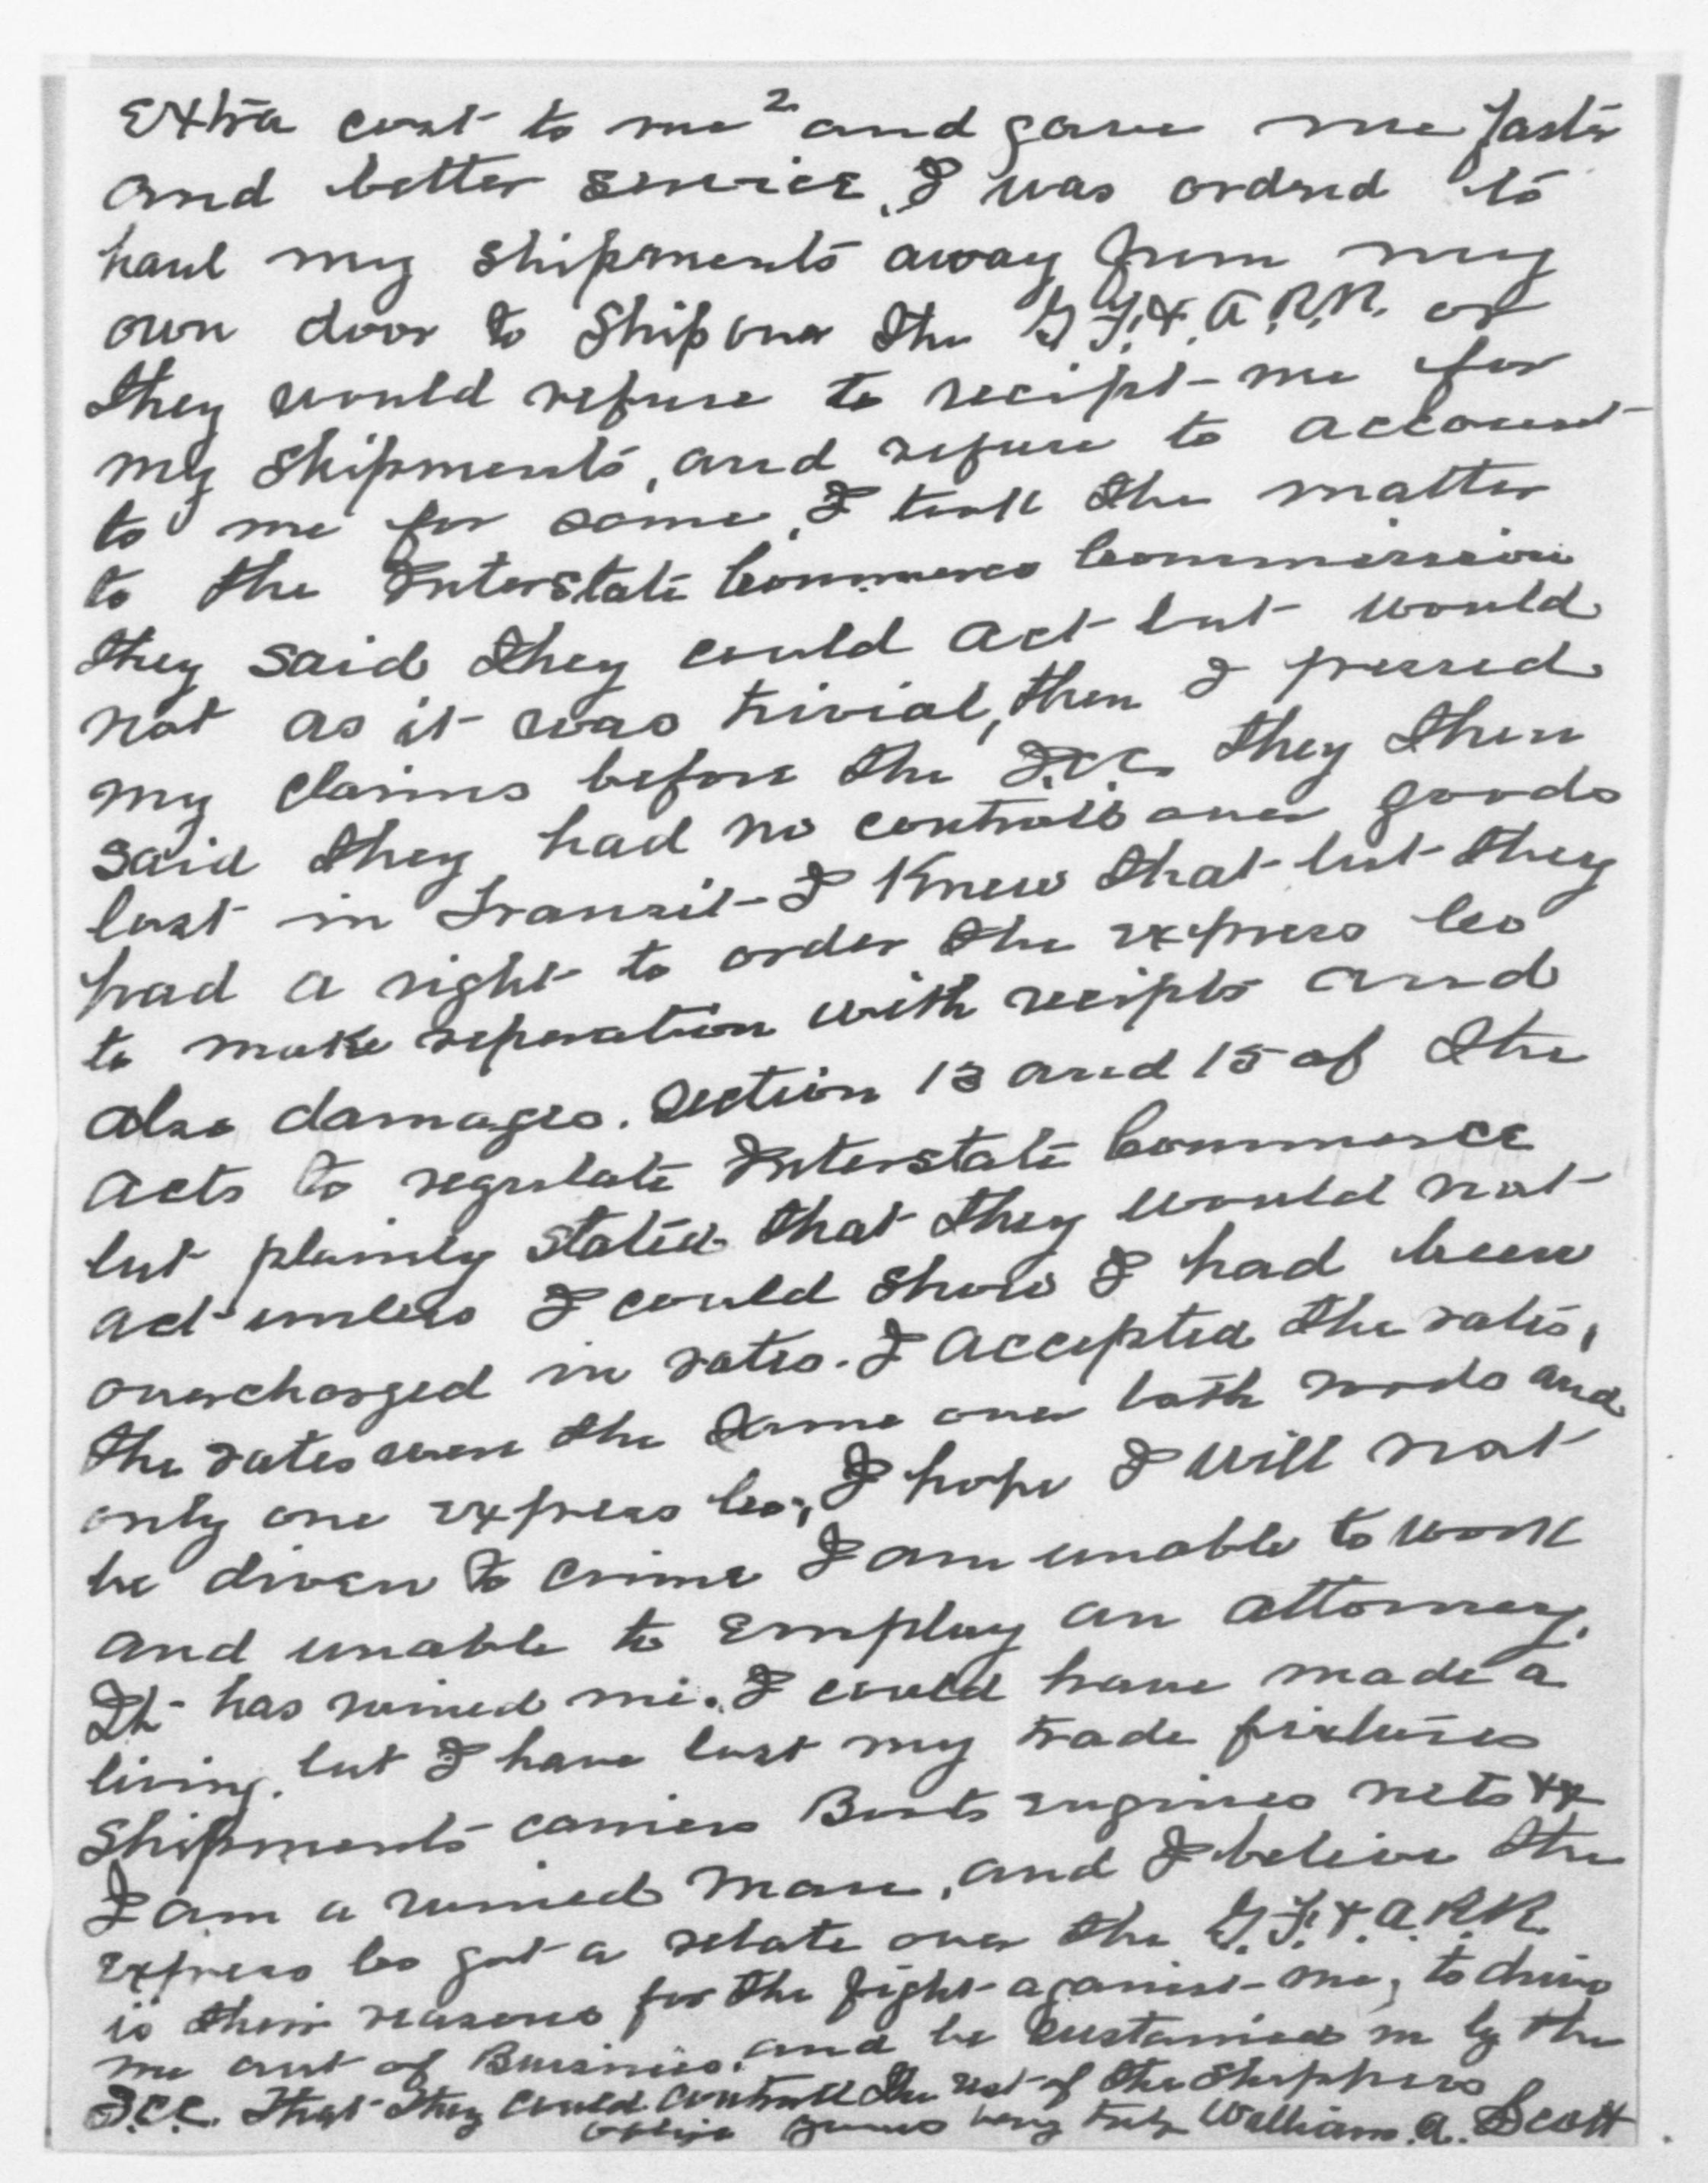 2
Extra cost to me and gave me faster
and better service, I was ordered to
haul my shipments away from my
own door to ship over the G.F.&.A.R.R. or
they would refuse to recipt me for
my shipments, and refuse to account
to me for same, I took the matter
to the Interstate Commerce Commission
they said they could act but would
not as it was trivial, then I pressed
my claims before the I.C.C. they then
said they had no controll over goods
lost in Transit - I Knew that but they
had a right to order the express Co
to make reperation with recipts and
also damages. Section 13 and 15 of the
acts to regulate Interstate Commerce
but plainly stated that they would not
act unless I could show I had been
overcharged in rates. I accepted the rates,
the rates were the same over both roads and
only one express Co., I hope I will not
be driven to crime I am unable to work
and unable to employ an attorney.
It has ruined me. I could have made a
living, but I have lost my trade fixtures
shipments carriers Boats engines nets &x
I am a ruined man, and I believe the
express Co got a rebate over the G.F.&.A.R.R.
is their reasons for the fight against me, to drive
me out of Buisniess, and be sustained in by the
I.C.C. That they could controll the rest of the Shippers
Oblige yours very truly William. A. Scott